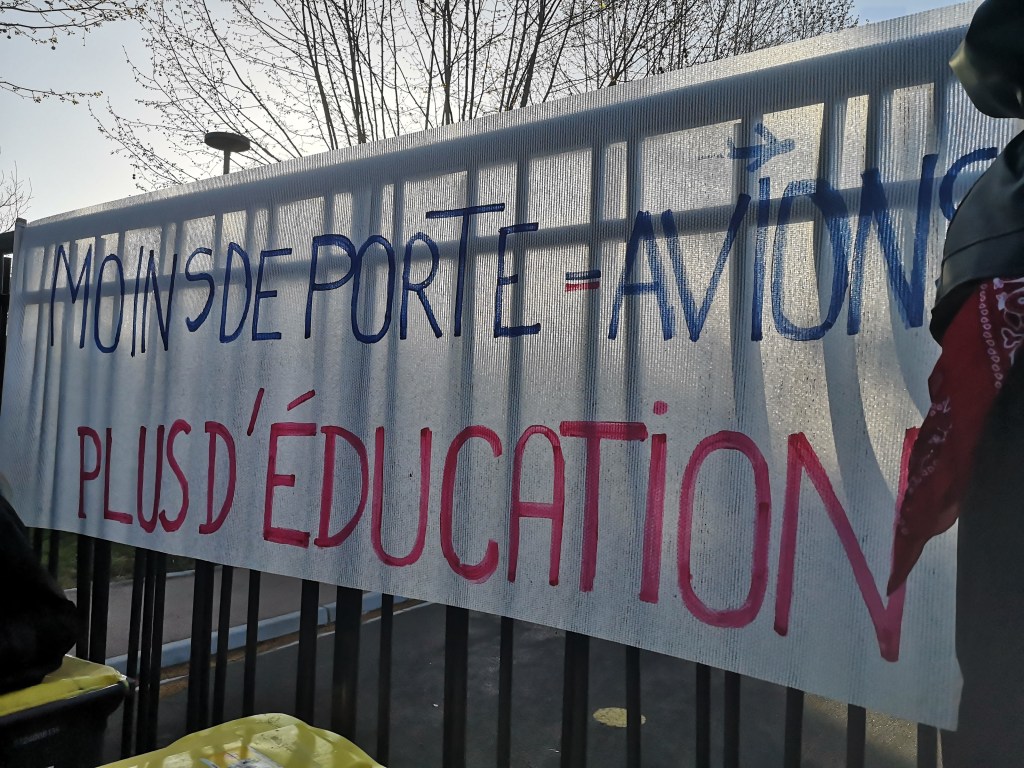 MOINS DE PORTE = AVIONS
PLUS D'ÉDUCATION